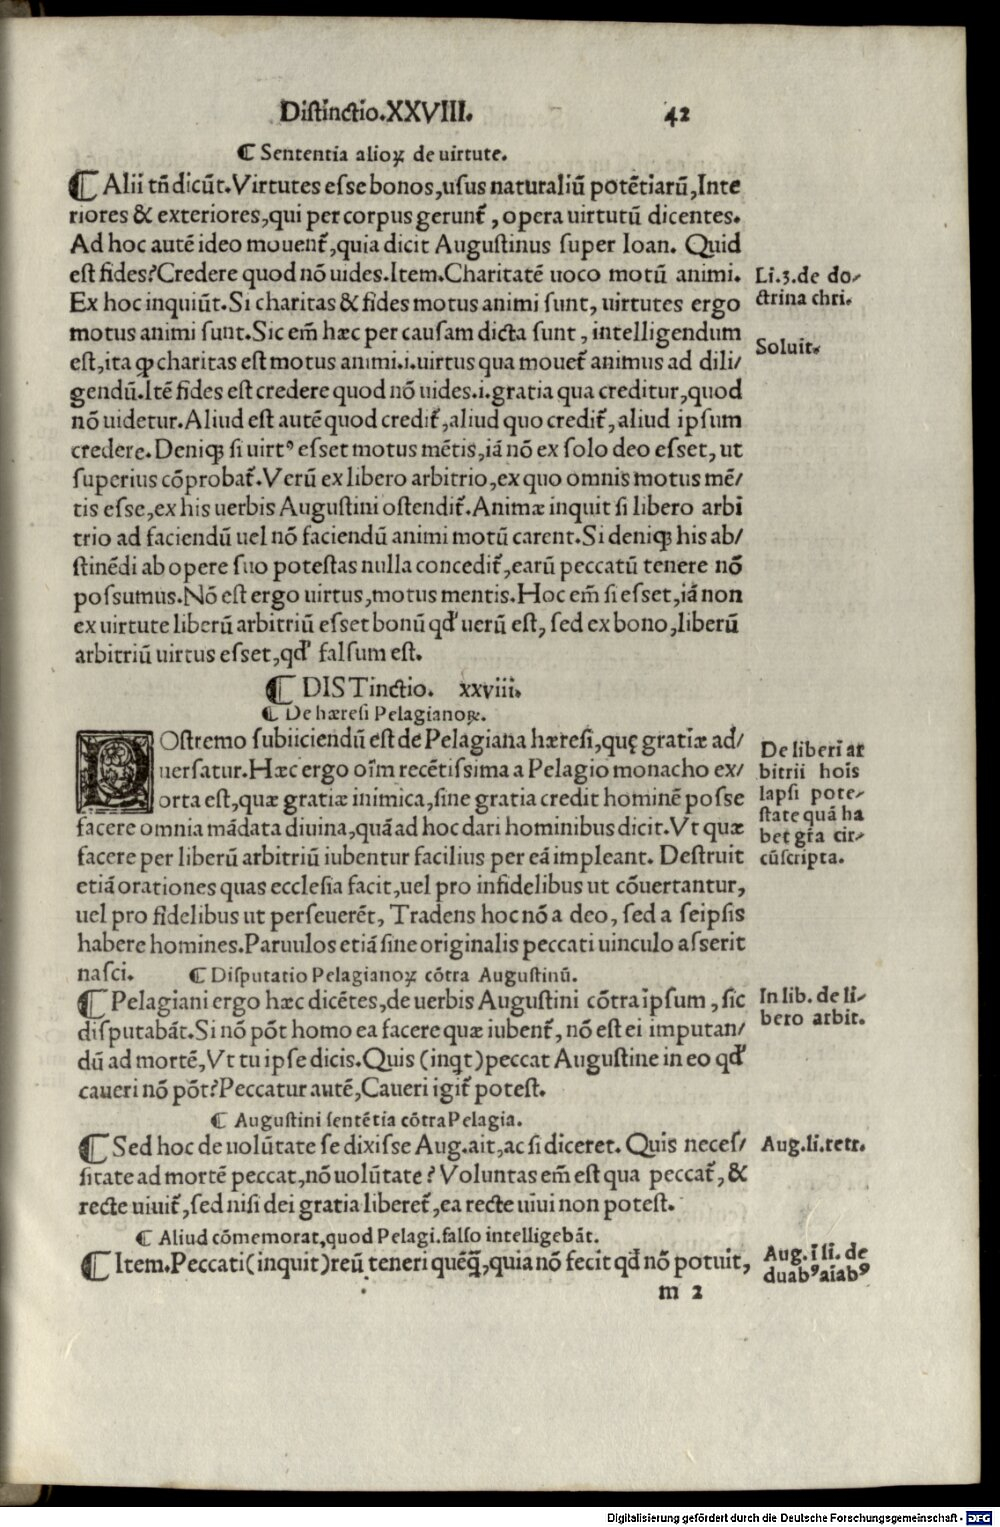 Distinctio.XXVIII. 42
¶ Sententia alioꝝ de uirtute.
¶ Alii tñ dicũt. Virtutes esse bonos, usus naturaliũ potẽtiarũ, Inte
riores & exteriores, qui per corpus gerunt᷑, opera uirtutũ dicentes.
Ad hoc autẽ ideo mouent᷑, quia dicit Augustinus super Ioan. Quid
est fides? Credere quod nõ uides. Item. Charitatẽ uoco motũ animi.
Li.3.de do-
ctrina chri.
Ex hoc inquiũt. Si charitas & fides motus animi sunt, uirtutes ergo
motus animi sunt. Sic em̃ hæc per causam dicta sunt, intelligendum
Soluit.
est, ita ꝙ charitas est motus animi.i.uirtus qua mouet᷑ animus ad dili/
gendũ. Itẽ fides est credere quod nõ uides.i.gratia qua creditur, quod
nõ uidetur. Aliud est autẽ quod credit᷑, aliud quo credit᷑, aliud ipsum
credere. Deniqꝫ si uirtꝰ esset motus mẽtis, iã nõ ex solo deo esset, ut
superius cõprobat᷑. Verũ ex libero arbitrio, ex quo omnis motus mẽ/
tis esse, ex his uerbis Augustini ostendit᷑. Animæ inquit si libero arbi
trio ad faciendũ uel nõ faciendũ animi motũ carent. Si deniqꝫ his ab/
stinẽdi ab opere suo potestas nulla concedit᷑, earũ peccatũ tenere nõ
possumus. Nõ est ergo uirtus, motus mentis. Hoc em̃ si esset, iã non
ex uirtute liberũ arbitriũ esset bonũ qđ uerũ est, sed ex bono, liberũ
arbitriũ uirtus esset, qđ falsum est.
¶ DISTinctio. xxviii.
¶ De hæresi Pelagianoꝝ.
POstremo subiiciendũ est de Pelagiana hæresi, quę gratiæ ad/
uersatur. Hæc ergo oĩm recẽtissima a Pelagio monacho ex/
orta est, quæ gratiæ inimica, sine gratia credit hominẽ posse
facere omnia mãdata diuina, quã ad hoc dari hominibus dicit. Vt quæ
facere per liberũ arbitriũ iubentur facilius per eã impleant. Destruit
De liberi ar
bitrii hoĩs
lapsi pote-
state quã ha
bet gr̃a cir-
cũscripta.
etiã orationes quas ecclesia facit, uel pro infidelibus ut cõuertantur,
uel pro fidelibus ut perseuerẽt, Tradens hoc nõ a deo, sed a seipsis
habere homines. Paruulos etiã sine originalis peccati uinculo asserit
nasci. ¶ Disputatio Pelagianoꝝ cõtra Augustinũ.
¶ Pelagiani ergo hæc dicẽtes, de uerbis Augustini cõtra ĩpsum, sic
disputabãt. Si nõ põt homo ea facere quæ iubent᷑, nõ est ei imputan/
In lib. de li-
bero arbit.
dũ ad mortẽ, Vt tu ipse dicis. Quis (inqͭ) peccat Augustine in eo qđ
caueri nõ põt? Peccatur autẽ, Caueri igit᷑ potest.
¶ Augustini sentẽtia cõtra Pelagia.
¶ Sed hoc de uolũtate se dixisse Aug. ait, ac si diceret. Quis neces/
Aug.li.retr.
sitate ad mortẽ peccat, nõ uolũtate? Voluntas em̃ est qua peccat᷑, &
recte uiuit᷑, sed nisi dei gratia liberet᷑, ea recte uiui non potest.
¶ Aliud cõmemorat, quod Pelagi. falso intelligebãt.
¶ Item. Peccati (inquit) reũ teneri quẽꝗ̃, quia nõ fecit qđ nõ potuit,
Aug. ĩ li. de
duabꝰ aĩabꝰ
m 2
Digitalisierung gefördert durch die Deutsche Forschungsgemeinschaft - DFG